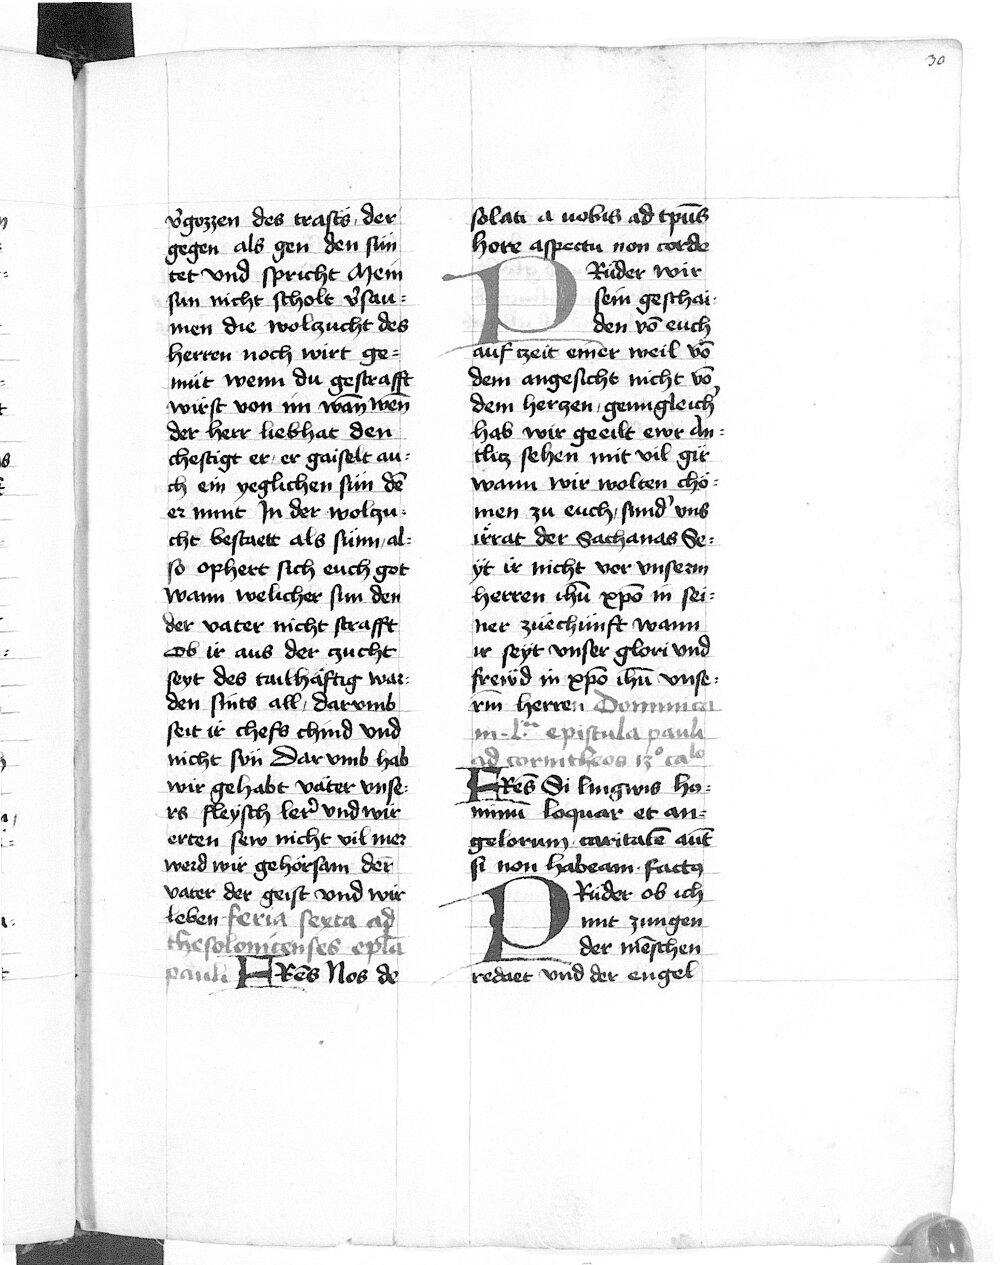 30
v̾gozzen des trasts, der
gegen als gen den sün
tet vnd spricht Mein
sun nicht scholt v̾sau=
men die wolzucht des
herren noch wirt ge=
müt wenn du gestrafft
wirst von im wan̄ wen̄
der herr liebhat den
chestigt er, er gaiselt au=
ch ein yeglichen sün dē
er nimt In der wolzu=
cht bestaett als sünn, al=
so ophert sich euch got
wann welicher sun den
der vater nicht strafft
Ob ir aus der zucht
seyt des tailhäftig war=
den sints all, darumb
seit ir chefs chind vnd
nicht sun Dar vmb hab
wir gehabt väter vnse=
rs fleysch ler̾ vnd wir
erten sew nicht vil mer
werd wir gehörsam der̄
vater der geist vnd wir
leben feria sexta ad
thesolonicenses epl̄a
pauli FRēs Nos de
solati a uobis ad tp̄us
hore aspectu non corde
PRüder wir
sein geschai=
den vō euch
auf czeit einer weil vō
dem angesicht nicht vō
dem herzen, genugleich̾
hab wir geeilt ewr An=
tlicz sehen mit vil gir
wann wir wolten chö=
men zu euch, sund̾ vns
irrat der Sathanas Se=
yt ir nicht vor vnserm
herren ih̄u xp̄o in sei=
ner zuechunft wann
ir seyt vnser glori vnd
frewd in xp̄o ih̄u vnse=
rm̄ herren Dominica
in l.ma epistula pauli
ad corintheos 13o calo
FRēs Si lingwis ho=
minū loquar et an=
gelorum, caritatē aūt
si non habeam, factꝰ
PRüder ob ich
mit zungen
der mēschen
redaet vnd der engel